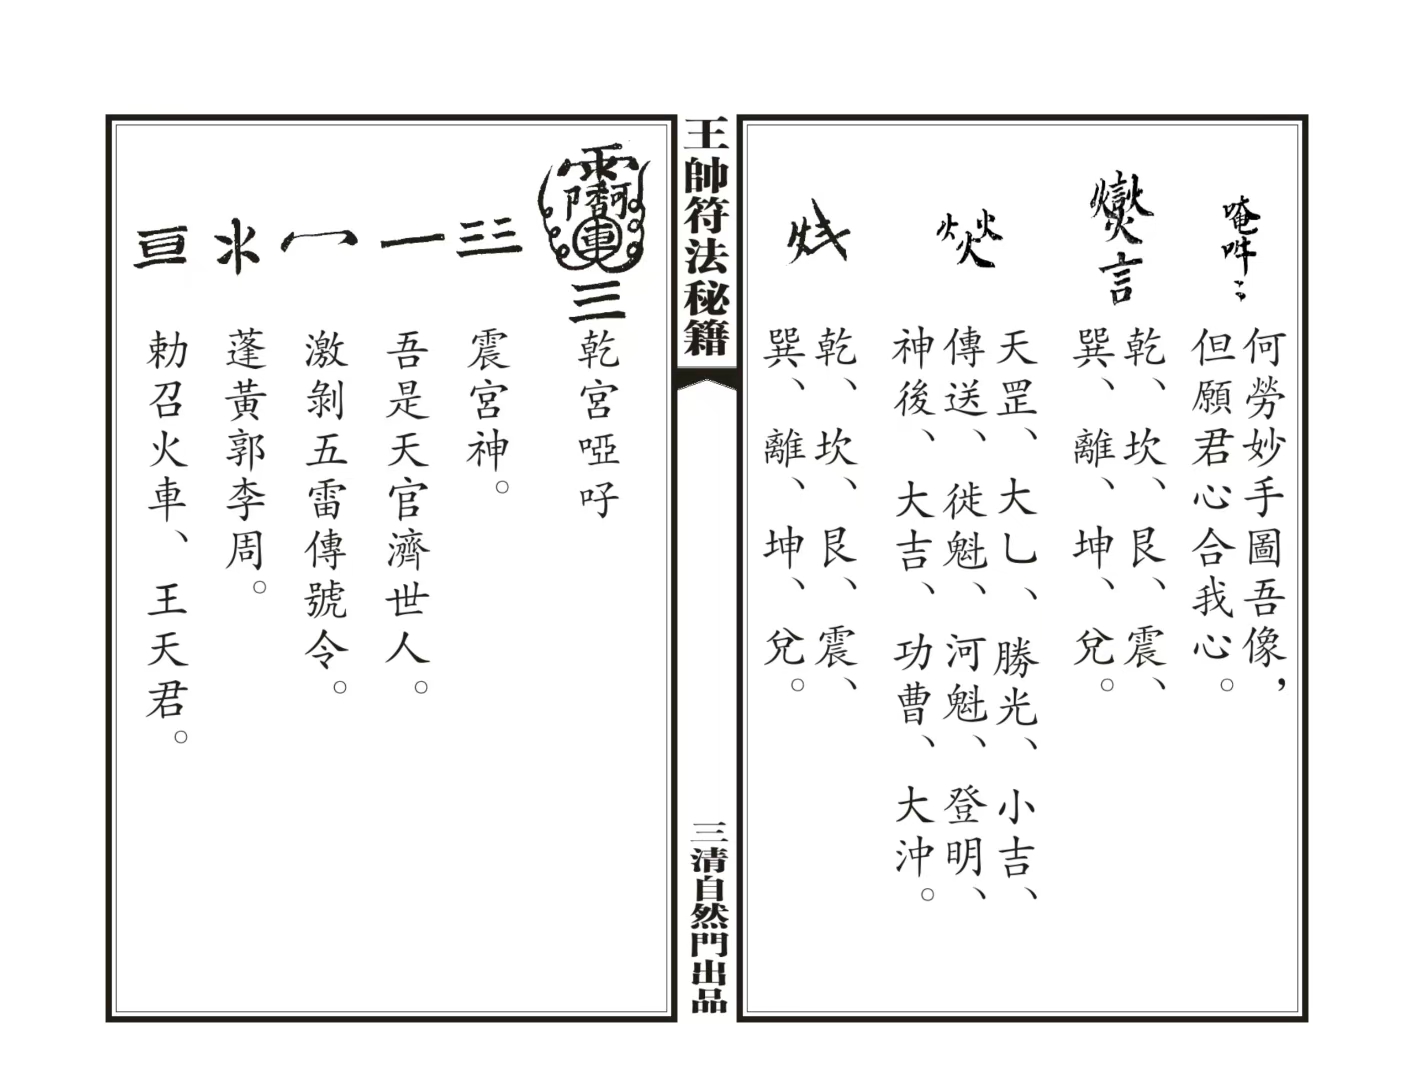 唵吽
何勞妙手圖吾像，
但願君心合我心。
言
乾、坎、艮、震、
巽、離、坤、兌。
天罡、大乚、勝光、小吉、
傳送、徙魁、河魁、登明、
神後、大吉、功曹、大沖。
乾、坎、艮、震、
巽、離、坤、兌。
王帥符法秘籍
三清自然門出品
三
乾宮啞吇
三三
震宮神。
一
吾是天官濟世人。
激剝五雷傳號令。
蓬黃郭李周。
勅召火車、王天君。